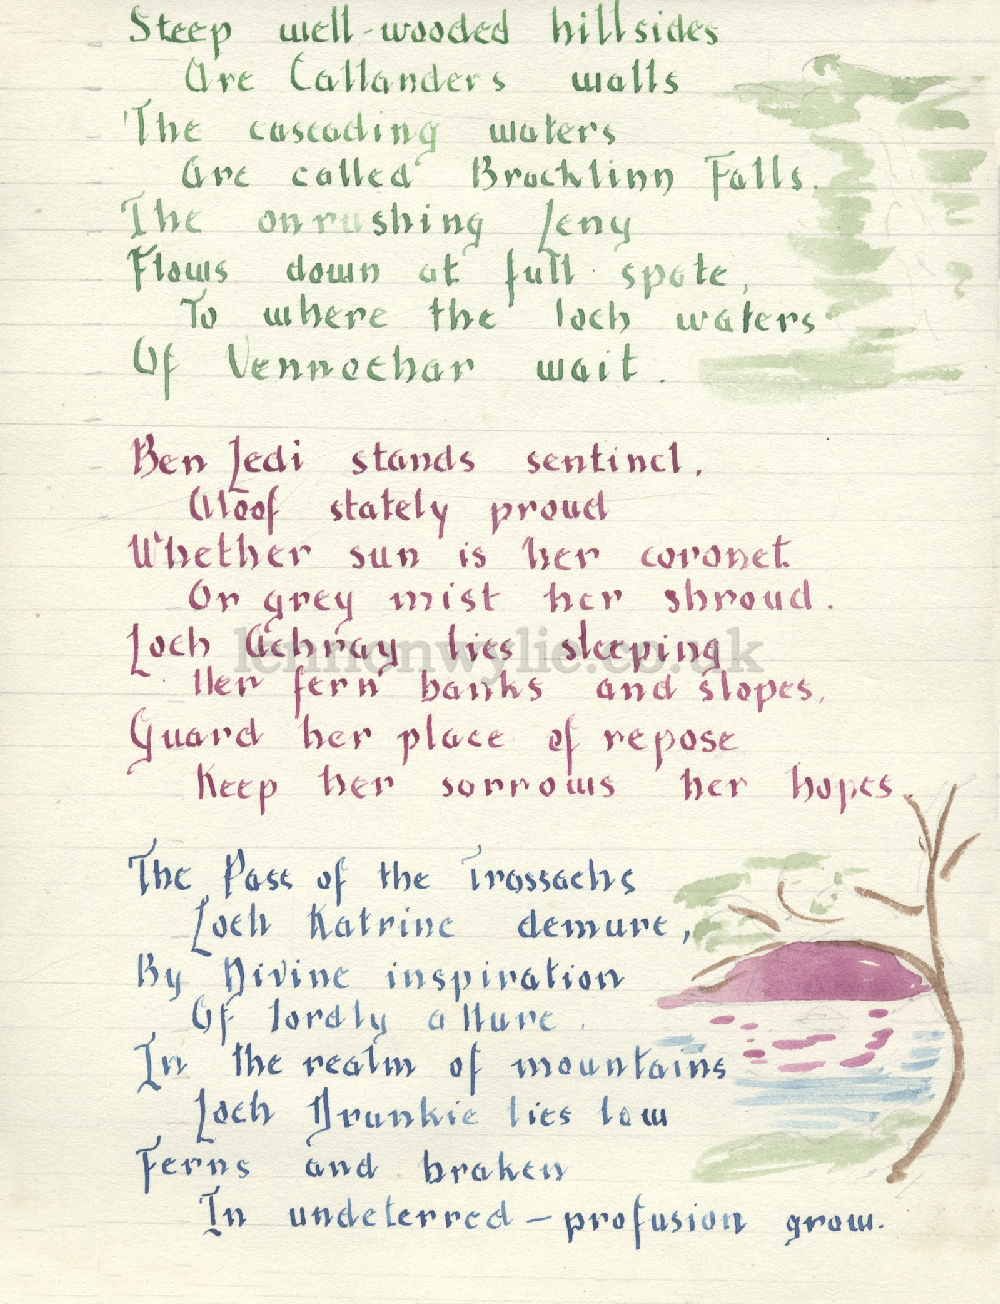 Steep well-wooded hillsides
Are Callanders walls
The cascading waters
Are called Brocklinn Falls.
The onrushing Leny
Flows down at full spate,
To where the loch waters
Of Vennochar wait.
Ben Ledi stands sentinel.
Aloof stately proud
Whether sun is her coronet
Or grey mist her shroud.
Loch Achray lies sleeping
Her fern banks and slopes,
Guard her place of repose
Keep her sorrows her hopes.
The Pass of the Trossachs
Loch Katrine demure,
By Divine inspiration
Of lordly allure.
In the realm of mountains
Loch Drunkie lies low
Ferns and braken
In undeterred – profusion grow.
lennonwylie.co.uk